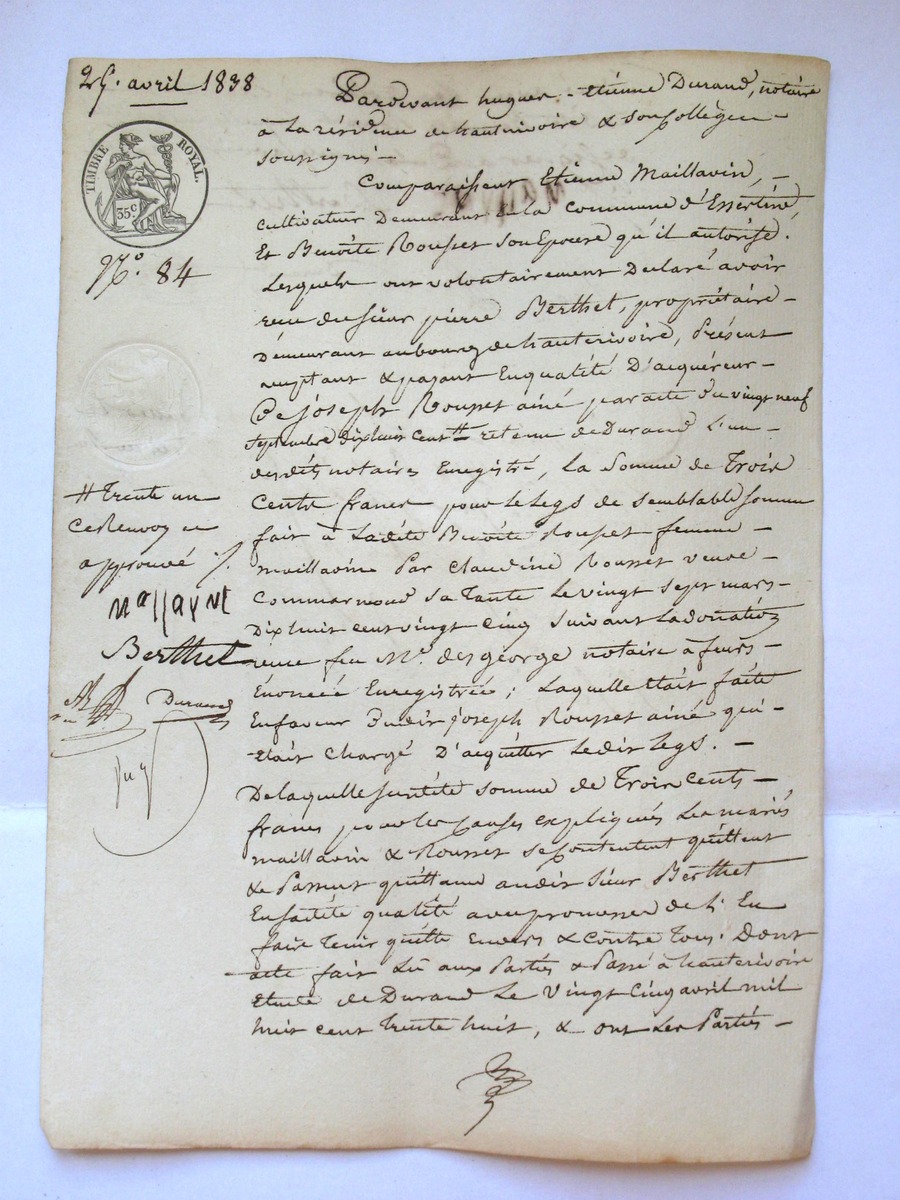 25. avril 1838
TIMBRE ROYAL.
35 c
N.° 84
Pardevant hugues-etiénne Durand, notaire
à La résidence de hauterivoire & son Collégue
soussignés -
Comparaissent Etiénne Maillavin, -
cultivateur Demeurant en la commune d'Essertine,
Et Benoîte Rousset son Epouse qu'il autorise.
Lesquels ont volontairement Déclaré avoir
reçu du sieur pierre Berthet, propriétaire -
Démeurant au bourg de hauterivoire, Présent
acceptant & payant En qualité D'acquéreur -
De joseph Rousset ainé par acte du vingt neuf
septembre dix huit cent # retenu de Durand L'un -
des dits notaires Enregistré, la Somme de Trois
Cents francs pour le Legs de semblable somme
fait à Ladite Benoîte Rousset femme -
maillavin Par Claudine Rousset veuve -
Commarmond sa Tante Le vingt sept mars -
Dix huit cent vingt Cinq suivant La donation
reçue feu Me. desgeorge notaire à feurs -
Enoncéé Enregistrée ; Laquelle était faite
En faveur dudit joseph Rousset ainé qui -
était Chargé D'acquitter Ledit Legs. -
De laquelle susdite somme de Trois Cents -
francs pour les Causes expliqués Les mariés
maillavin & Rousset se Contentent quittent
& Passent quittance audit sieur Berthet
En sadite qualité avec promesse de l'En
faire Tenir quitte Envers & Contre Tous. Dont
acte fait Lû aux Parties & Passé à hauterivoire
Etude de Durand Le Vingt Cinq avril mil
huit cent trente huit, & ont Les Parties -
# Trente un
Ce Renvoy est
approuvé ./.
Mallavint
Berthet
Durand
puy